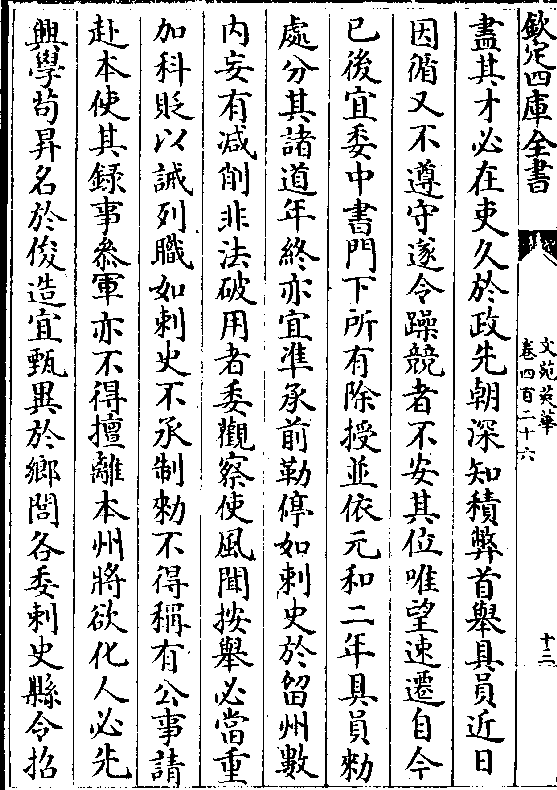 欽定四庫全書
文苑英華
卷四百二十六
十三
盡其才必在吏久於政先朝深知積弊首舉具員近日
因循又不遵守遂令躁競者不安其位唯望速遷自今
已後宜委中書門下所有除授並依元和二年具員勑
處分其諸道年終亦宜准承前勒停如刺史於留州數
内妄有減削非法破用者委觀察使風聞按舉必當重
加科貶以誡列職如刺史不承制勑不得稱有公事請
赴本使其録事叅軍亦不得擅離本州將欲化人必先
興學茍昇名於俊造宜甄異於鄉閭各委刺史縣令招